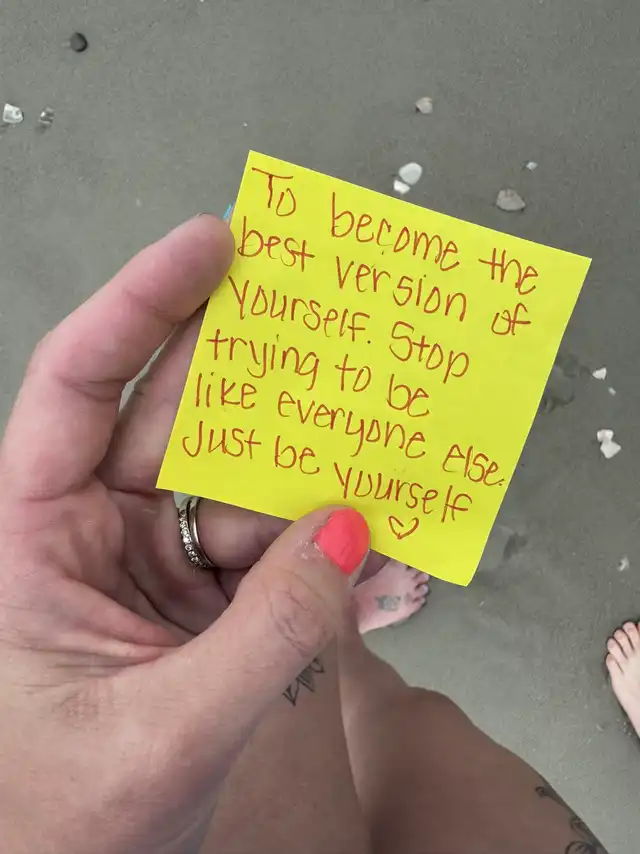 To become the
best version of
yourself. Stop
trying to be
like everyone else.
Just be yourself
♡